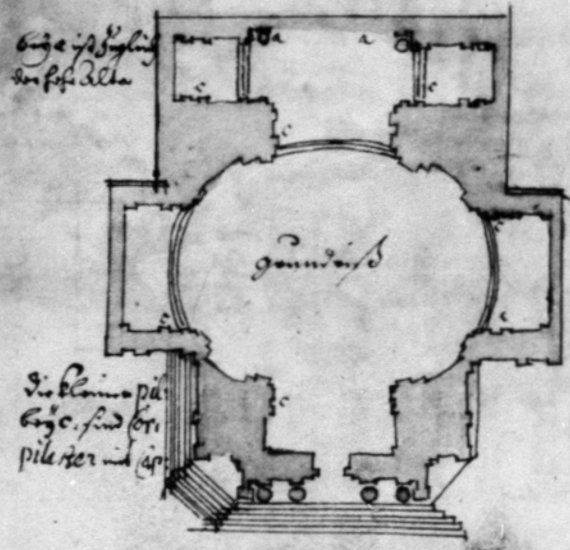 beÿ a ist Zugleich
der hohe Alta
a a
c c
c
Grundriß
c
c c
c
die kleinen pil:
beÿ c. sind
pilaster und Cap: